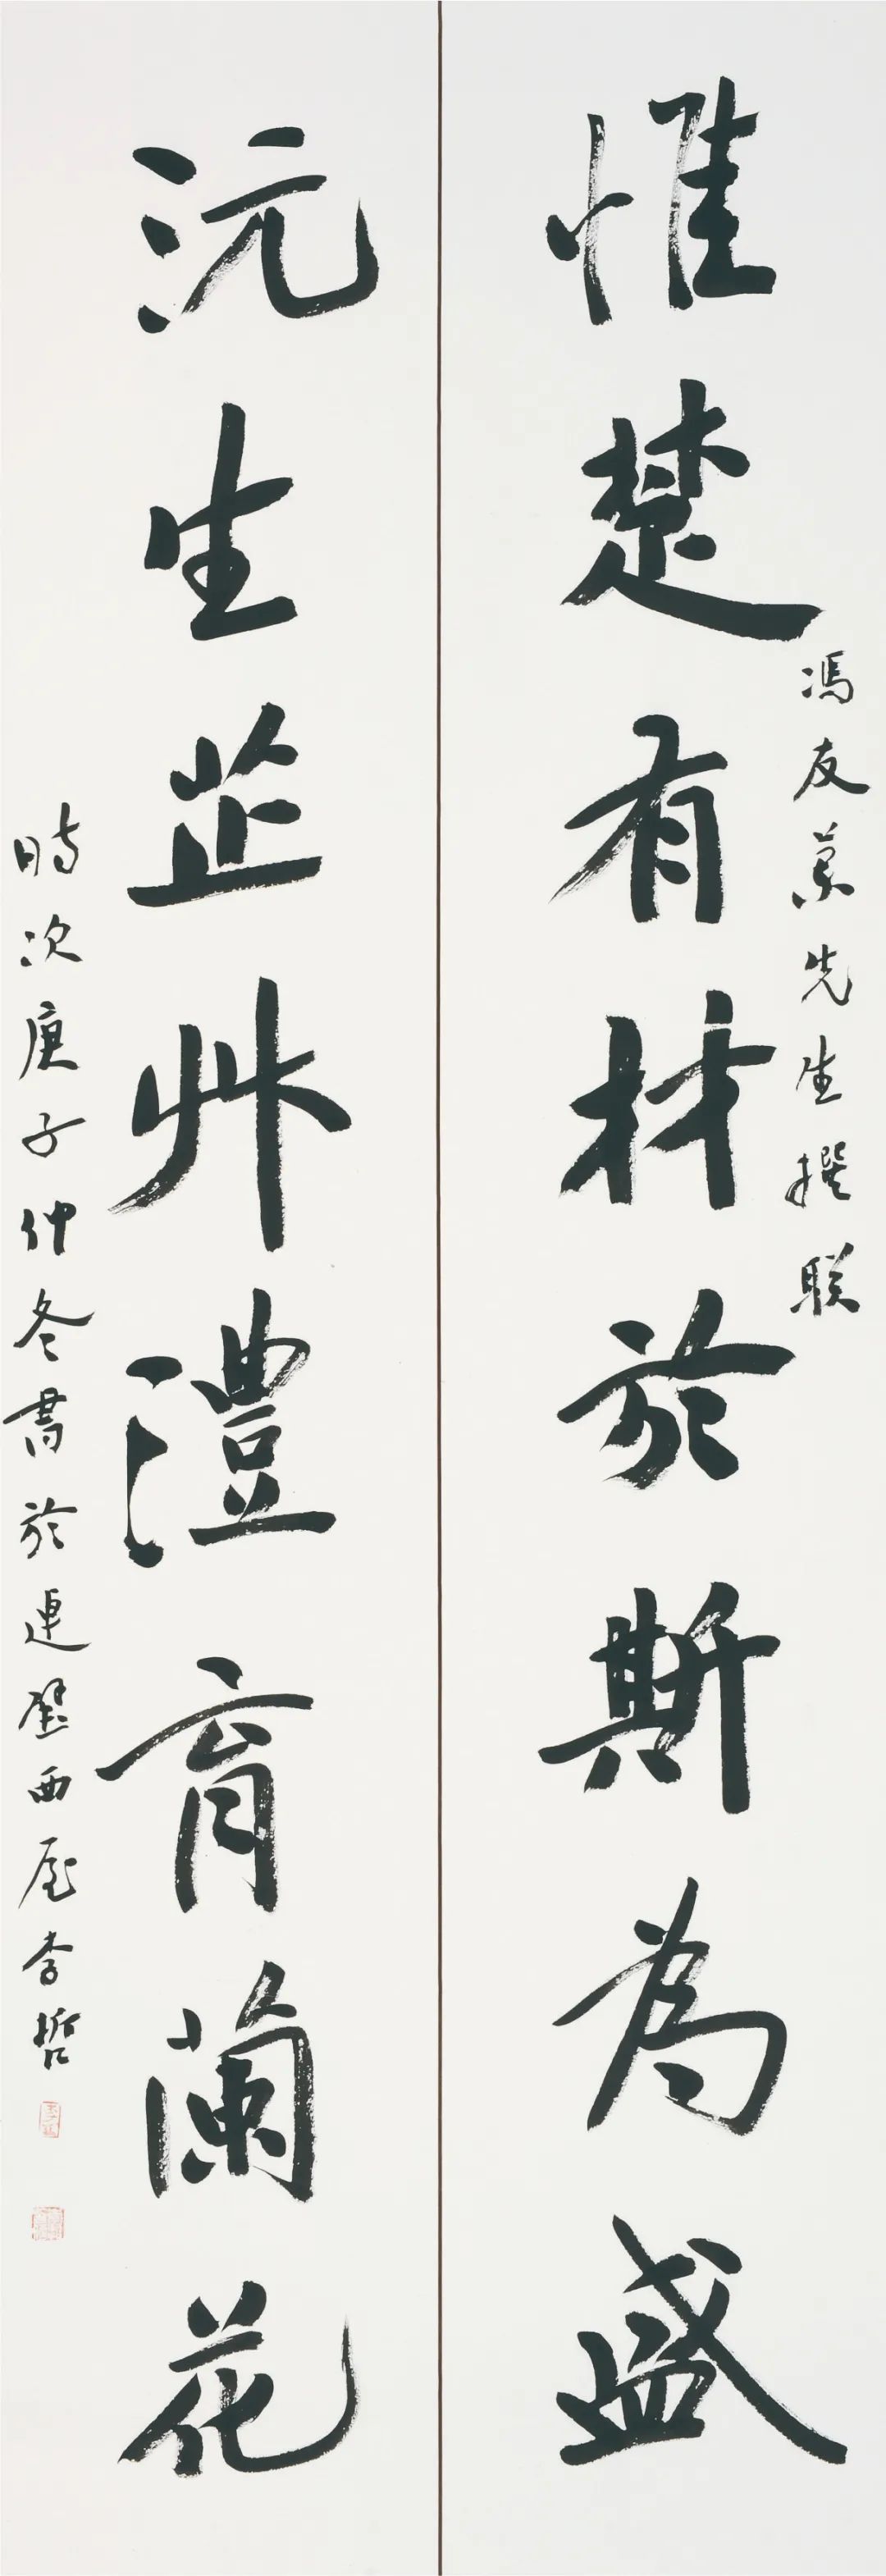 惟楚有材於斯為盛
馮友蘭先生撰聯
沅生芷艸澧育蘭花
時次庚子仲冬書於連壁西屋李哲